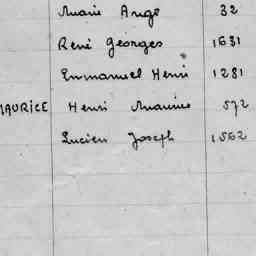 Marie Ange 32
René Georges 1631
Emmanuel Henri 1281
MAURICE Henri Maurice 572
Lucien Joseph 1562